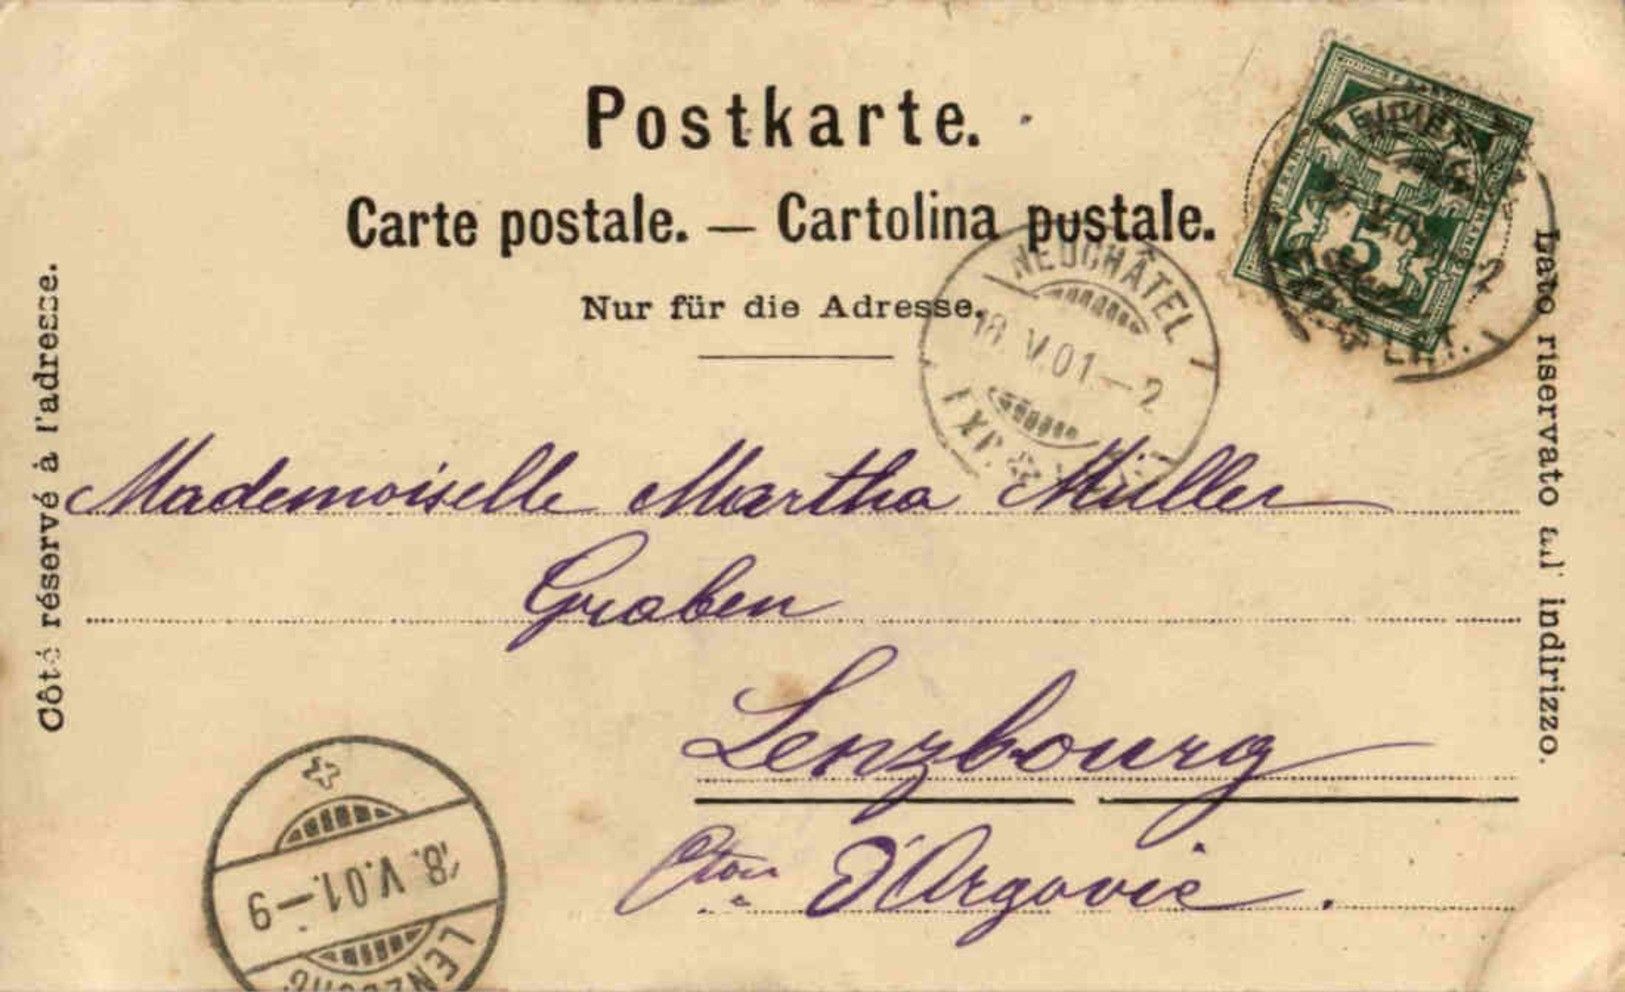 Postkarte.
Carte postale. — Cartolina postale.
Nur für die Adresse.
Côté réservé à l'adresse.
Lato riservato all' indirizzo.
5
NEUCHÂTEL
18 V.01.–2
EXP.
Mademoiselle Martha Müller
Graben
Lenzbourg
Cton d'Argovie.
18.V.01.–9
LENZBURG